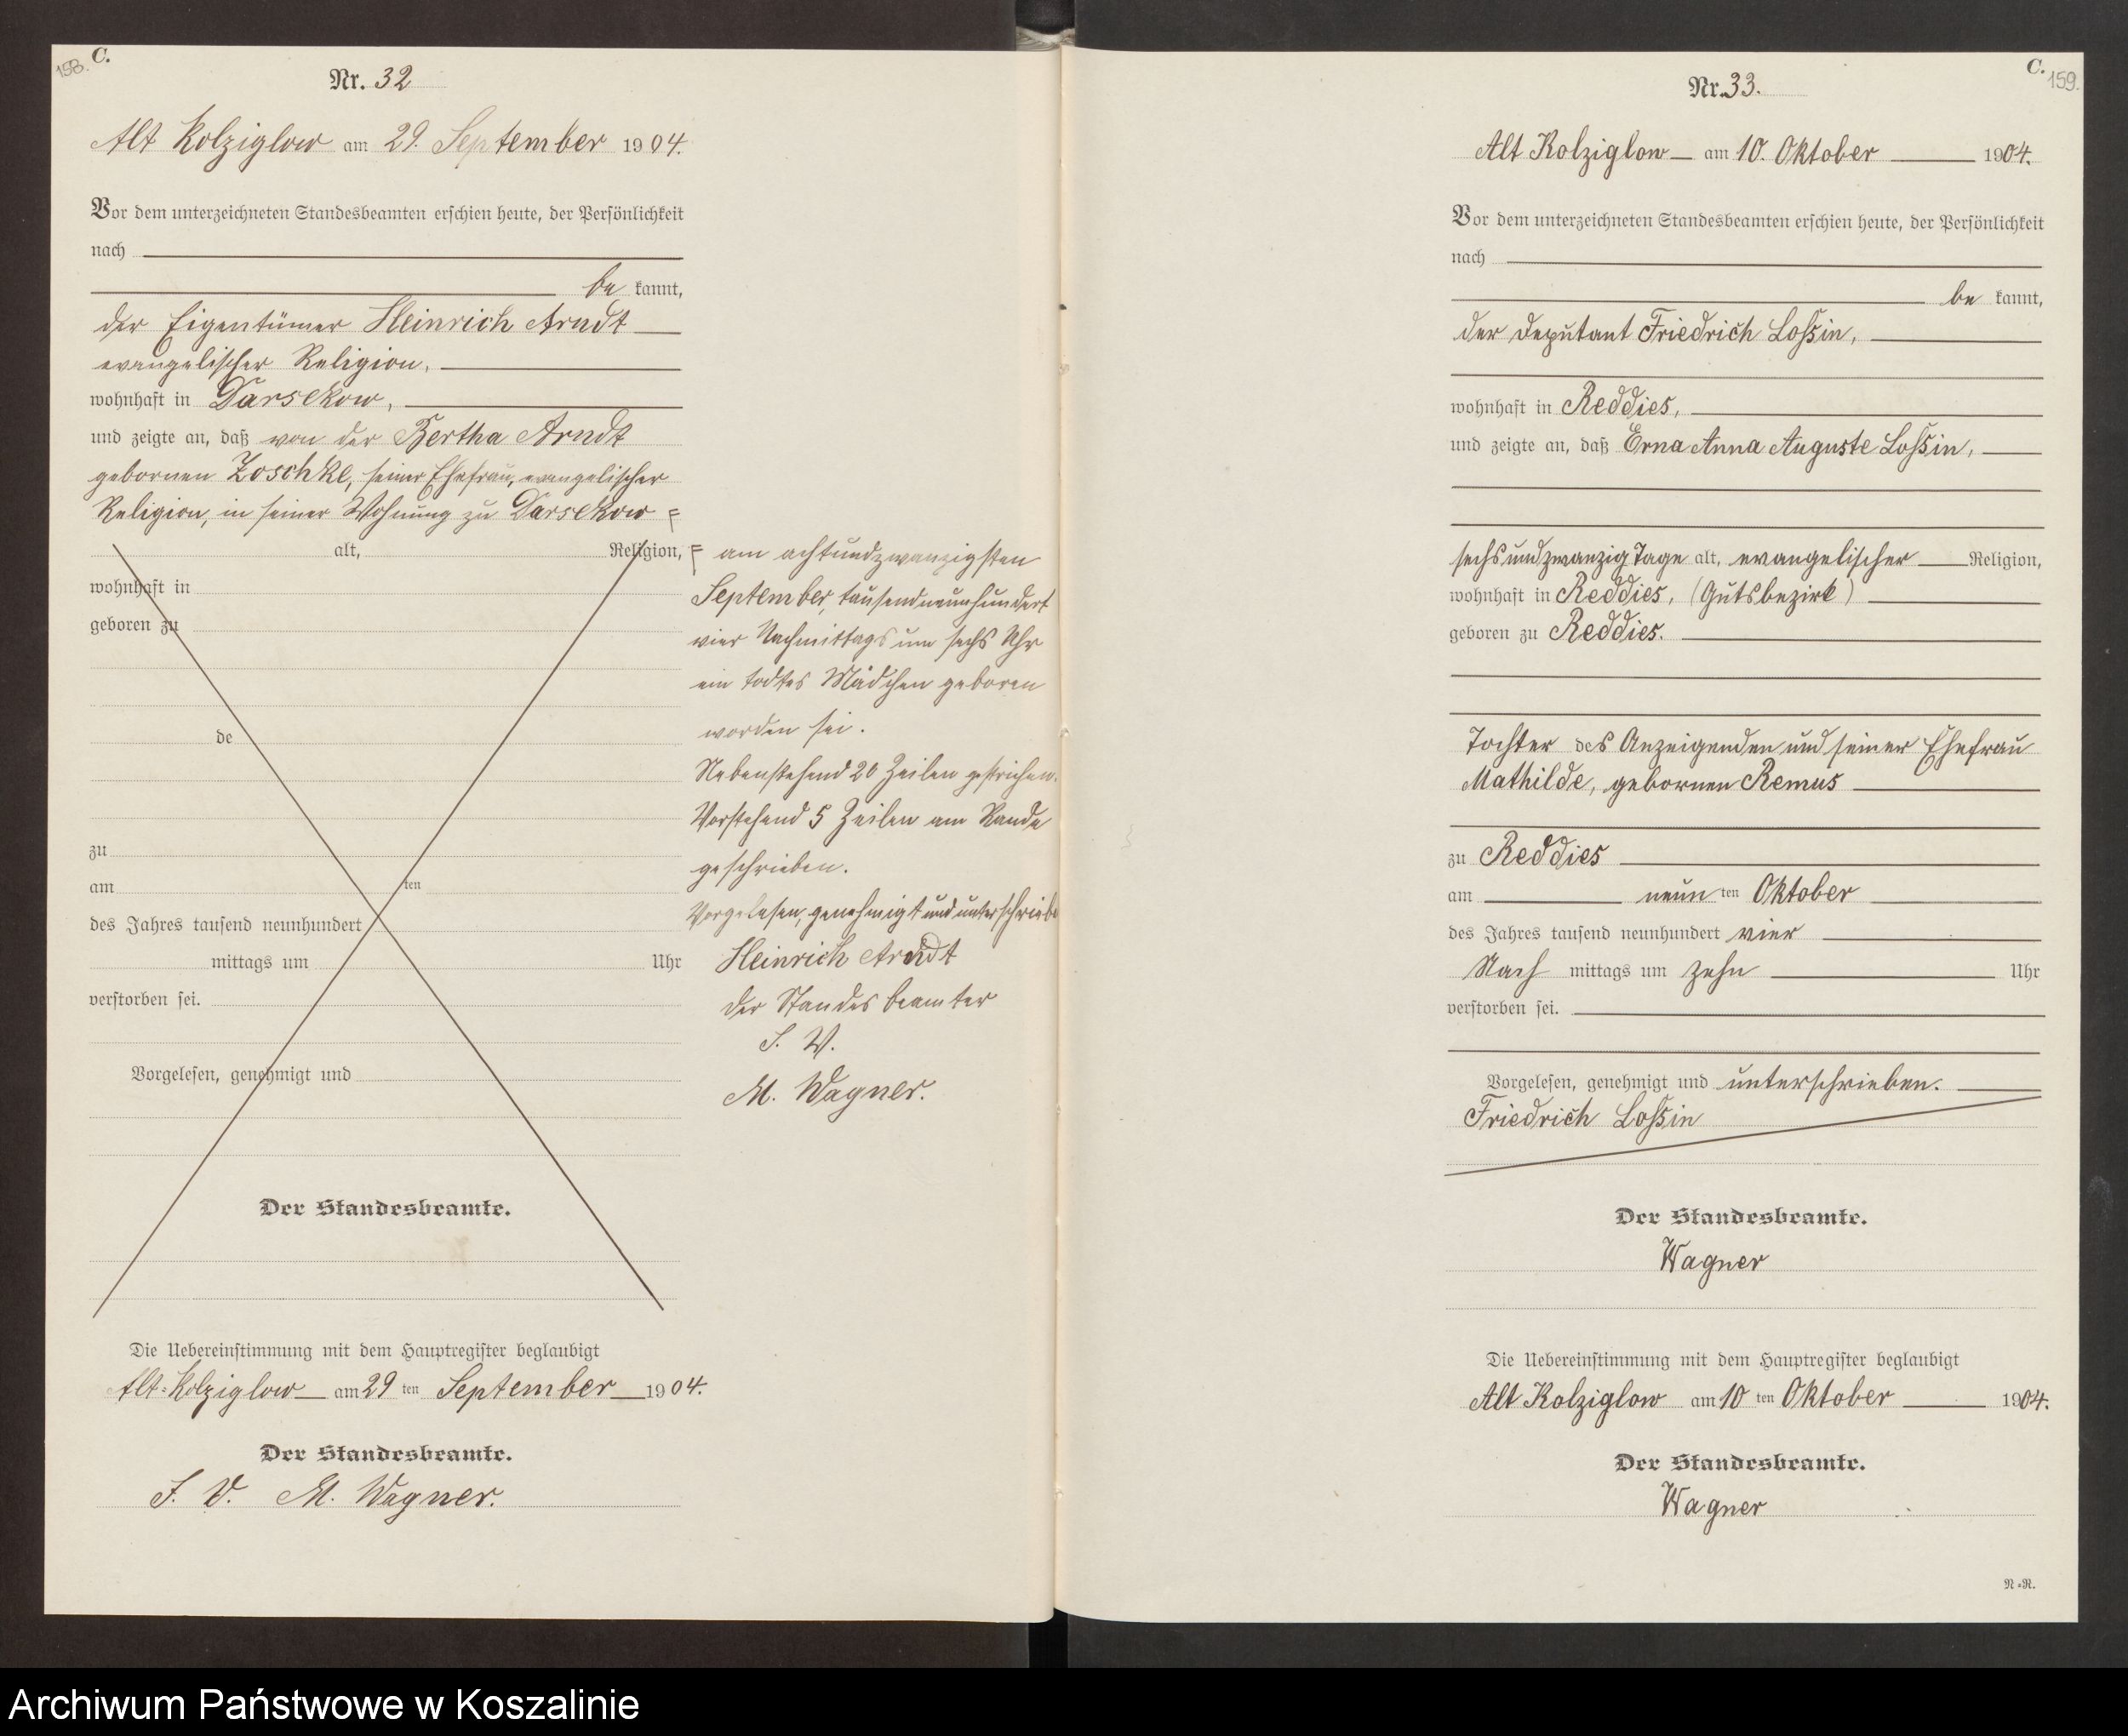 158.
C.
Nr. 32
Alt Kolziglow am 29. September 1904.
Vor dem unterzeichneten Standesbeamten erschien heute, der Persönlichkeit
nach
be kannt,
der Eigentümer Heinrich Arndt
evangelischer Religion,
wohnhaft in Darsekow,
und zeigte an, daß von der Bertha Arndt
gebornen Zoschke, seiner Ehefrau, evangelischer
Religion, in seiner Wohnung zu Darsekow
alt, Religion,
wohnhaft in
geboren zu
de
zu
am ten
des Jahres tausend neunhundert
mittags um Uhr
verstorben sei.
Vorgelesen, genehmigt und
Der Standesbeamte.
am achtundzwanzigsten
September, tausendneunhundert
vier Nachmittags um sechs Uhr
ein todtes Mädchen geboren
worden sei.
Nebenstehend 20 Zeilen gestrichen.
Vorstehend 5 Zeilen am Rande
geschrieben.
Vorgelesen, genehmigt und unterschrieben
Heinrich Arndt
Der Standesbeamter
J. V.
M. Wagner.
Die Uebereinstimmung mit dem Hauptregister beglaubigt
Alt-Kolziglow am 29 ten September 1904.
Der Standesbeamte.
J. V. M. Wagner.
C.
159.
Nr. 33.
Alt Kolziglow am 10. Oktober 1904.
Vor dem unterzeichneten Standesbeamten erschien heute, der Persönlichkeit
nach
be kannt,
der Deputant Friedrich Loßin,
wohnhaft in Reddies,
und zeigte an, daß Erna Anna Auguste Loßin,
sechsundzwanzig Tage alt, evangelischer Religion,
wohnhaft in Reddies, (Gutsbezirk)
geboren zu Reddies.
Tochter des Anzeigenden und seiner Ehefrau
Mathilde, gebornen Remus
zu Reddies
am neun ten Oktober
des Jahres tausend neunhundert vier
Nach mittags um zehn Uhr
verstorben sei.
Vorgelesen, genehmigt und unterschrieben.
Friedrich Loßin
Der Standesbeamte.
Wagner
Die Uebereinstimmung mit dem Hauptregister beglaubigt
Alt Kolziglow am 10 ten Oktober 1904.
Der Standesbeamte.
Wagner
N=R.
Archiwum Państwowe w Koszalinie